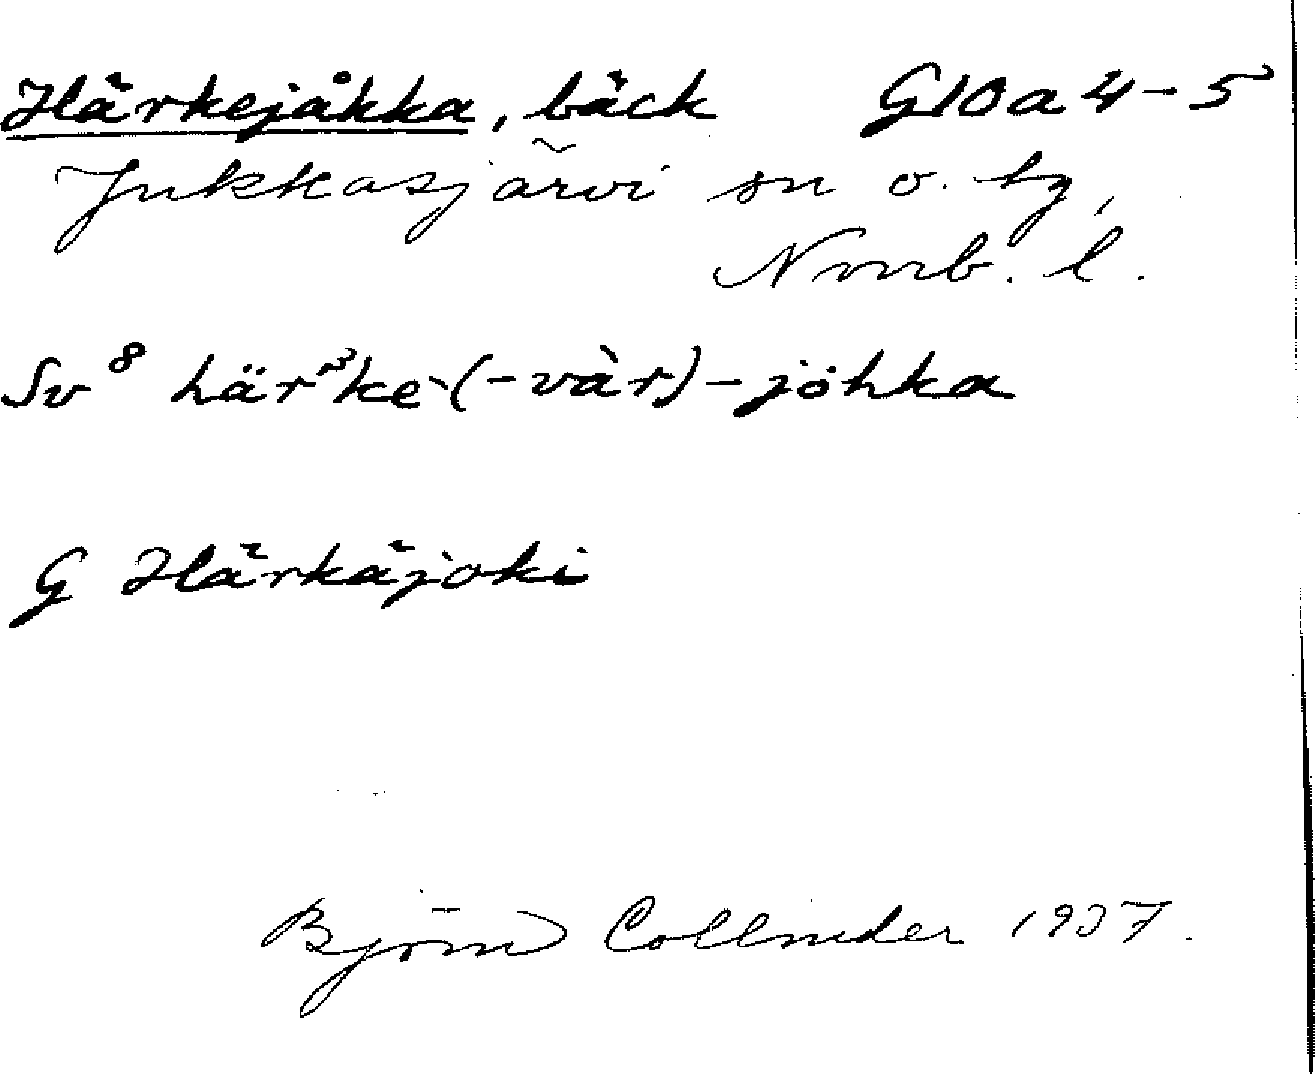 Härkejåkka, bäck G10a4-5
Jukkasjärvi sn o. tg,
Norrb. l.
Sv⁸ här³ke-(-vàr)-jòhka
G Härkäjoki
Björn Collinder 1937.